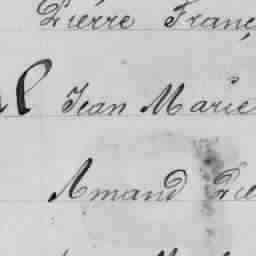 Pierre Franç
Jean Marie
Amand